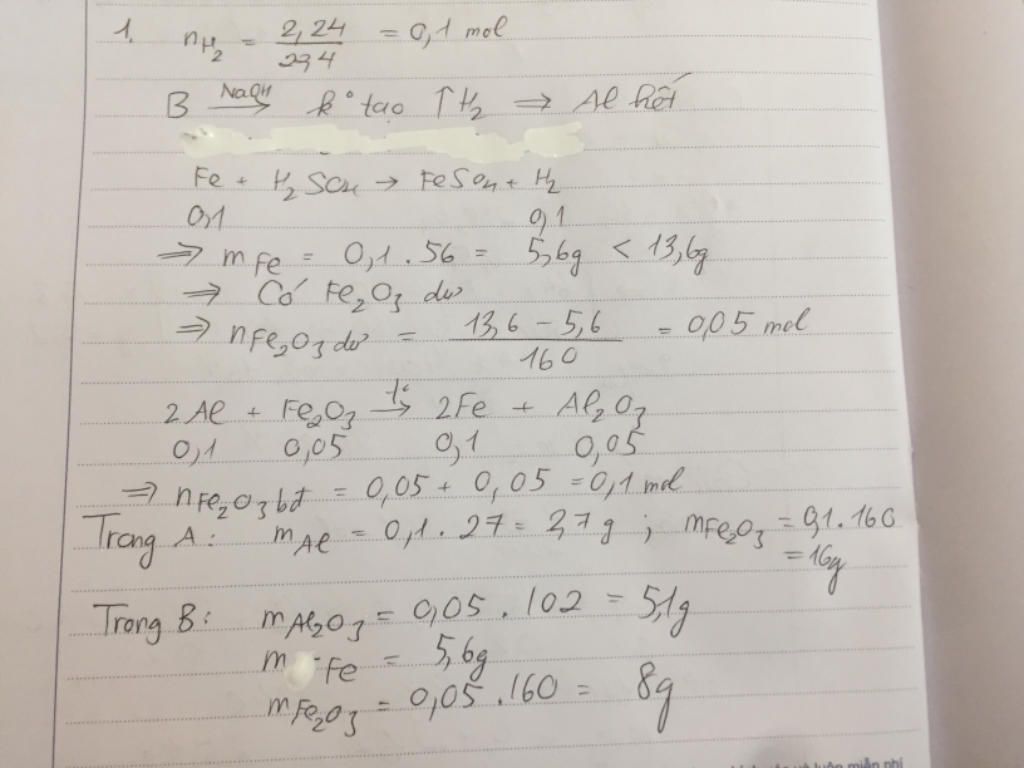 1. nH₂ = 2,24/22,4 = 0,1 mol
B —NaOH→ k° tạo ↑H₂ ⇒ Al hết
Fe + H₂SO₄ → FeSO₄ + H₂
0,1 0,1
⇒ mFe = 0,1 . 56 = 5,6g < 13,6g
⇒ Có Fe₂O₃ dư
⇒ nFe₂O₃ dư = (13,6 - 5,6)/160 = 0,05 mol
2Al + Fe₂O₃ —t°→ 2Fe + Al₂O₃
0,1 0,05 0,1 0,05
⇒ nFe₂O₃ bđ = 0,05 + 0,05 = 0,1 mol
Trong A: mAl = 0,1 . 27 = 2,7g ; mFe₂O₃ = 0,1 . 160
= 16g
Trong B: mAl₂O₃ = 0,05 . 102 = 5,1g
mFe = 5,6g
mFe₂O₃ = 0,05 . 160 = 8g